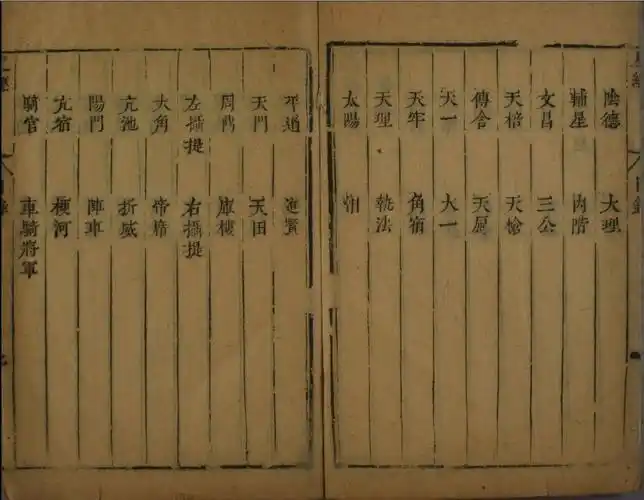 陰德 大理
輔星 內階
文昌 三公
天棓 天槍
傳舍 天厨
天一 太一
天牢 角宿
天理 執法
太陽 相
平道 進賢
天門 天田
周鼎 庫樓
左攝提 右攝提
大角 帝席
亢池 折威
陽門 陣車
亢宿 梗河
騎官 車騎將軍